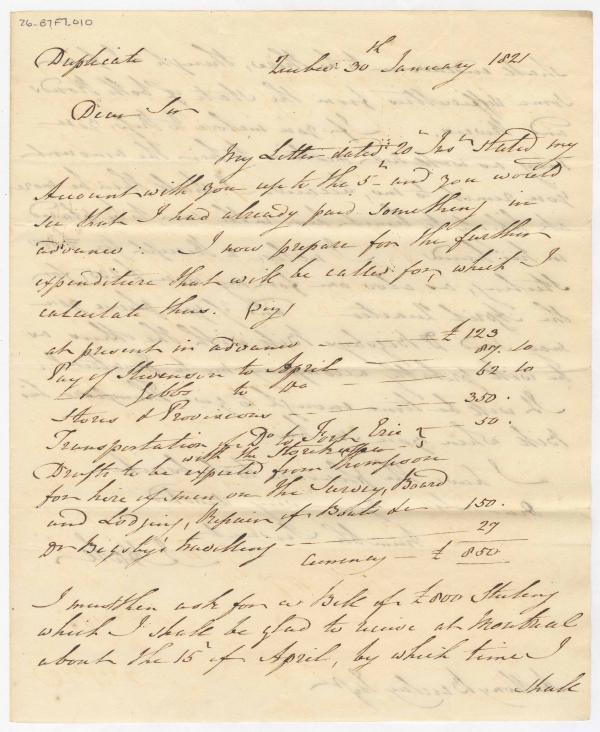 26-B7F7.010
Duplicate
Quebec 30th January 1821
Dear Sir
My Letter dated 20th Inst Stated my
Account with you up to the 5th and you would
see that I had already paid something in
advance. I now prepare for the further
expenditure that will be called for, which I
calculate thus. (say)
at present in advance — £ 123
Pay of Stevenson to April — 87. 10
— Gibbs to Do — 62. 10
Stores & Provisions — 350.
Transportation of Do to Fort Erie
with the Storekeeper — 50.
Drafts to be expected from Thompson
for hire of men on the Survey, Board
and Lodging, Repair of Boats &c 150.
Dr Bigsby's travelling — 27
Currency — £ 850
I must then ask for a Bill of £800 Sterling
which I shall be glad to receive at Montreal
about the 15th of April, by which time I
shall